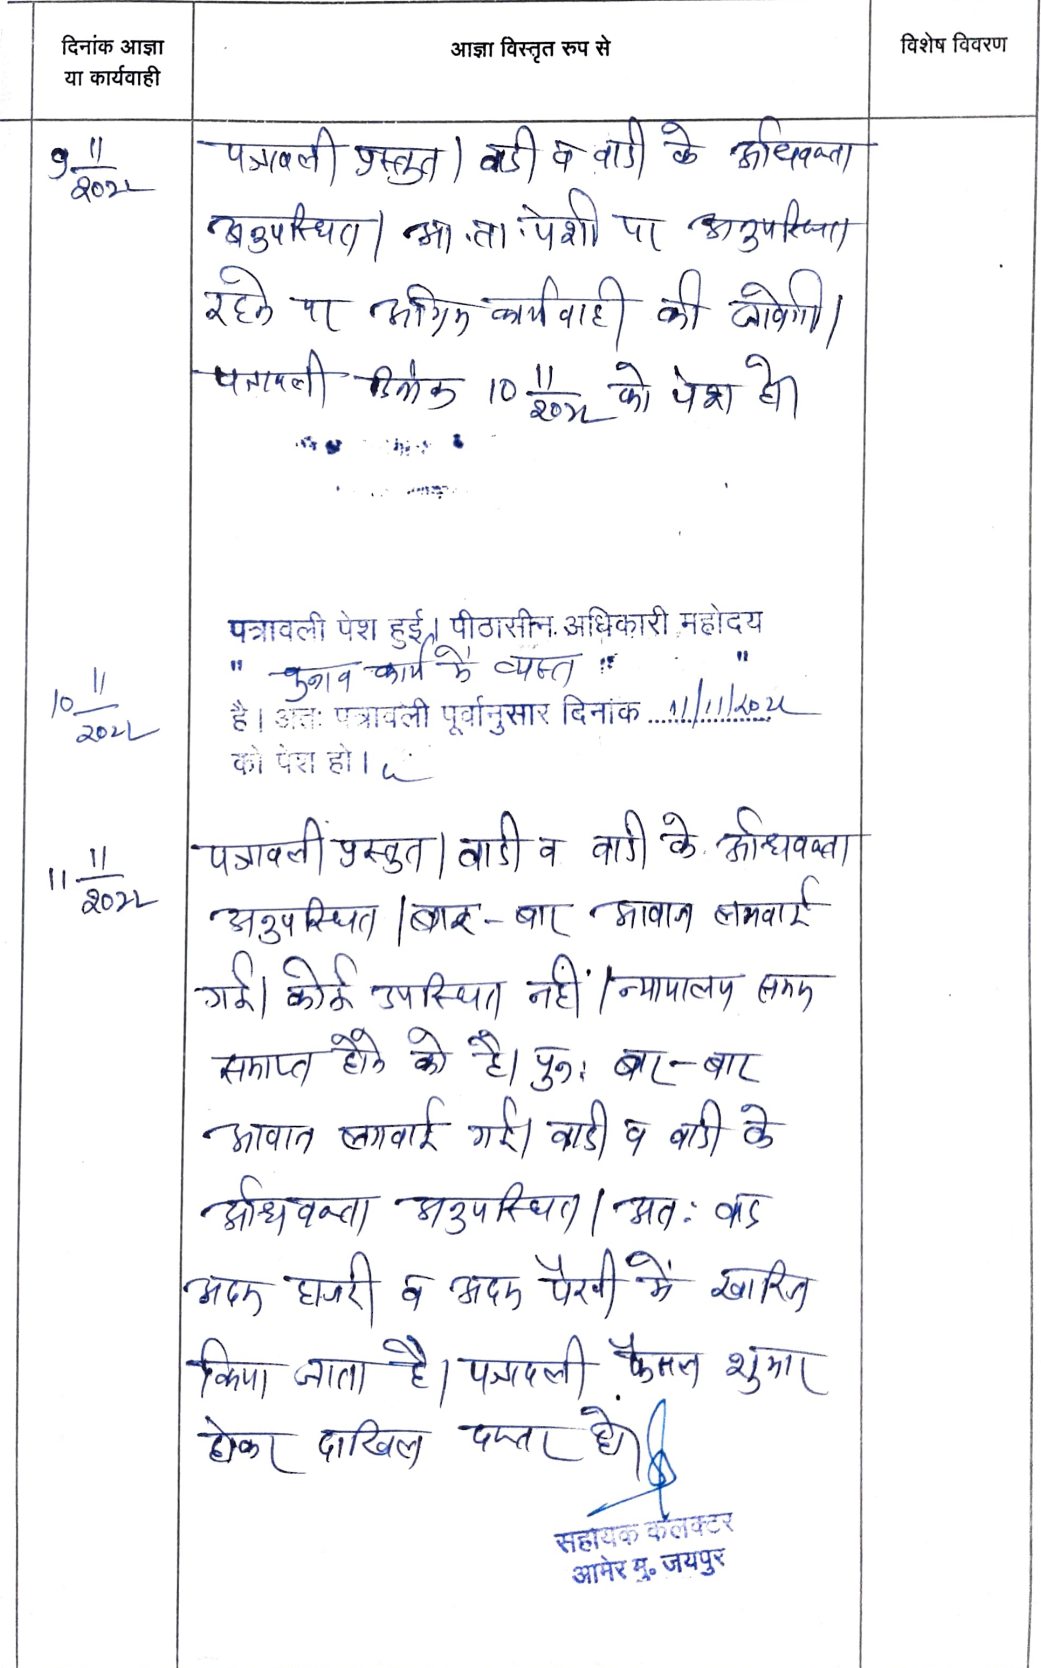 दिनांक आज्ञा
या कार्यवाही
आज्ञा विस्तृत रुप से
विशेष विवरण
9 11/2022
पत्रावली प्रस्तुत। वादी व वादी के अधिवक्ता
अनुपस्थित। आ.ता. पेशी पर अनुपस्थित
रहने पर अग्रिम कार्यवाही की जावेगी।
पत्रावली दिनांक 10 11/2022 को पेश हो।
पत्रावली पेश हुई। पीठासीन अधिकारी महोदय
" चुनाव कार्य में व्यस्त " "
10 11/2022
है। अतः पत्रावली पूर्वानुसार दिनांक 11/11/2022
को पेश हो।
11 11/2022
पत्रावली प्रस्तुत। वादी व वादी के अधिवक्ता
अनुपस्थित। बार-बार आवाज लगवाई
गई। कोई उपस्थित नहीं। न्यायालय समय
समाप्त होने को है। पुनः बार-बार
आवाज लगवाई गई। वादी व वादी के
अधिवक्ता अनुपस्थित। अतः वाद
अदम हाजरी व अदम पैरवी में खारिज
किया जाता है। पत्रावली फैसल शुमार
होकर दाखिल दफ्तर हो।
सहायक कलक्टर
आमेर मु. जयपुर